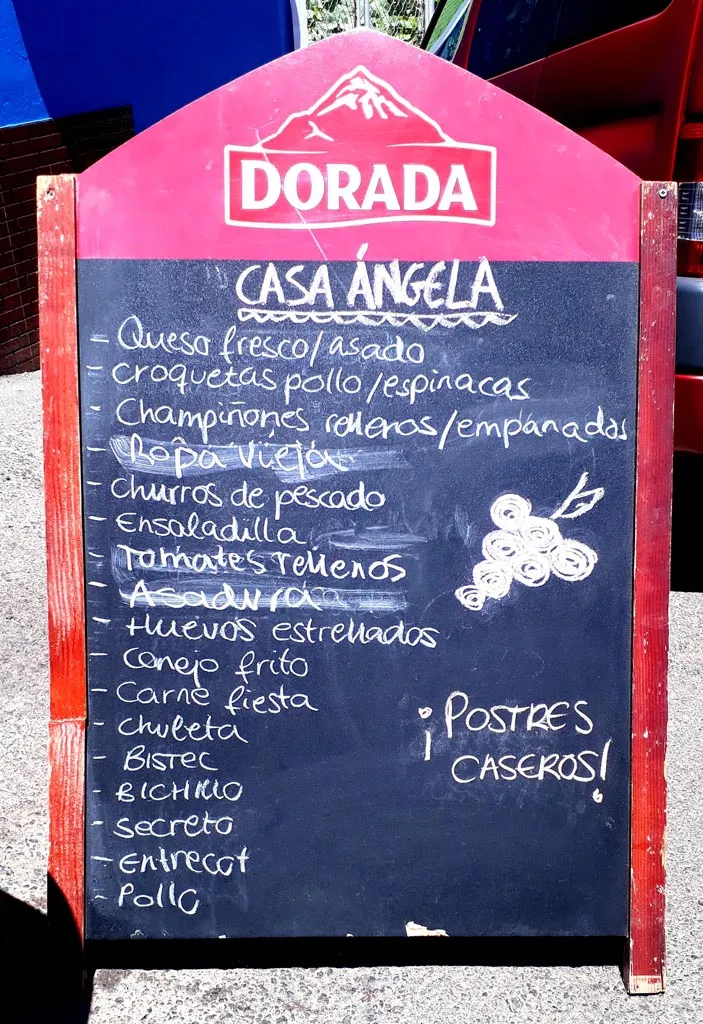 DORADA
CASA ÁNGELA
- Queso fresco/asado
- Croquetas pollo/espinacas
- Champiñones rellenos/empanadas
- Ropa Vieja
- Churros de pescado
- Ensaladilla
- Tomates rellenos
- Asadura
- Huevos estrellados
- Conejo frito
- Carne fiesta
- Chuleta
- BISTEC
- BICHILLO
- Secreto
- Entrecot
- Pollo
¡POSTRES
CASEROS!